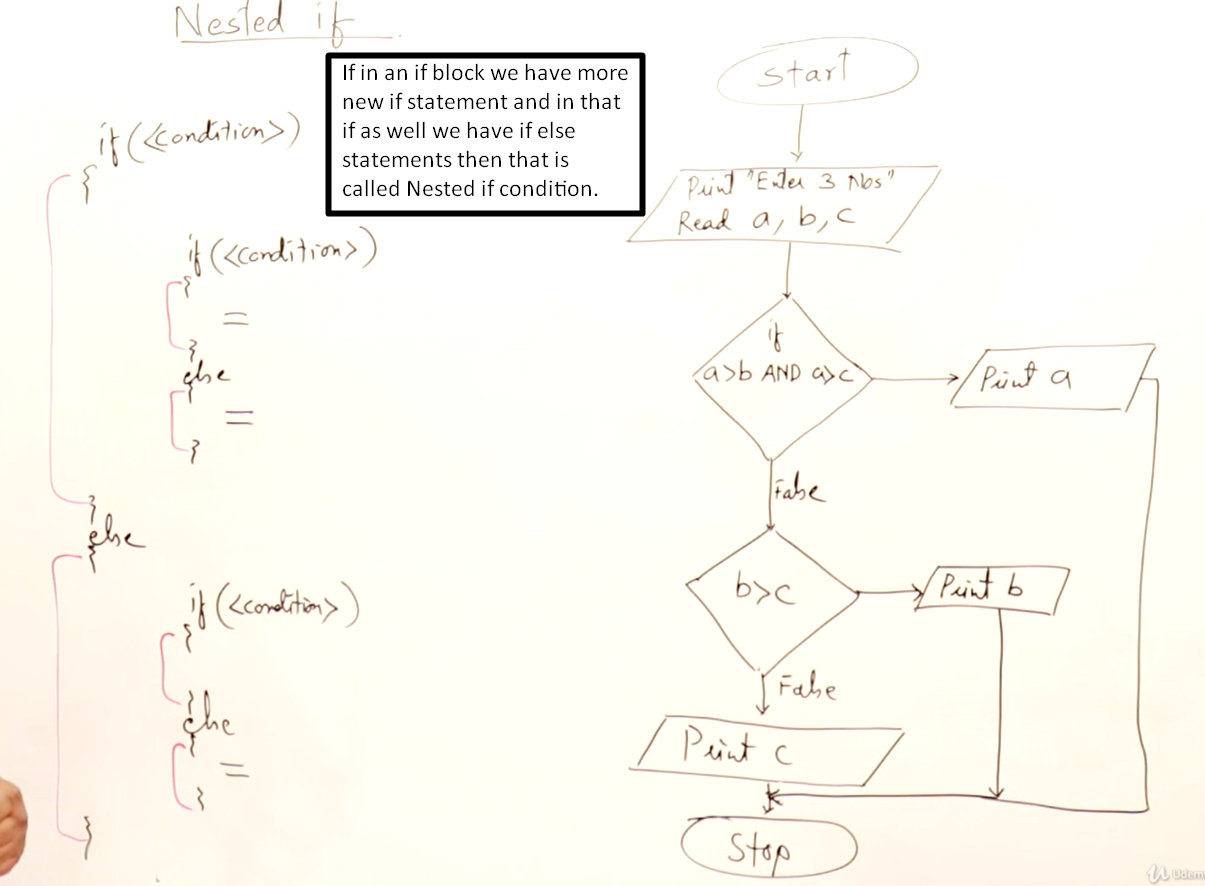 Nested if
If in an if block we have more
new if statement and in that
if as well we have if else
statements then that is
called Nested if condition.
if(<condition>)
{
if(<condition>)
{
=
}
else
{
=
}
}
else
{
if(<condition>)
{
}
else
{
=
}
}
Start
Print "Enter 3 Nbs"
Read a, b, c
if
a>b AND a>c
Print a
False
b>c
Print b
False
Print c
Stop
Udemy